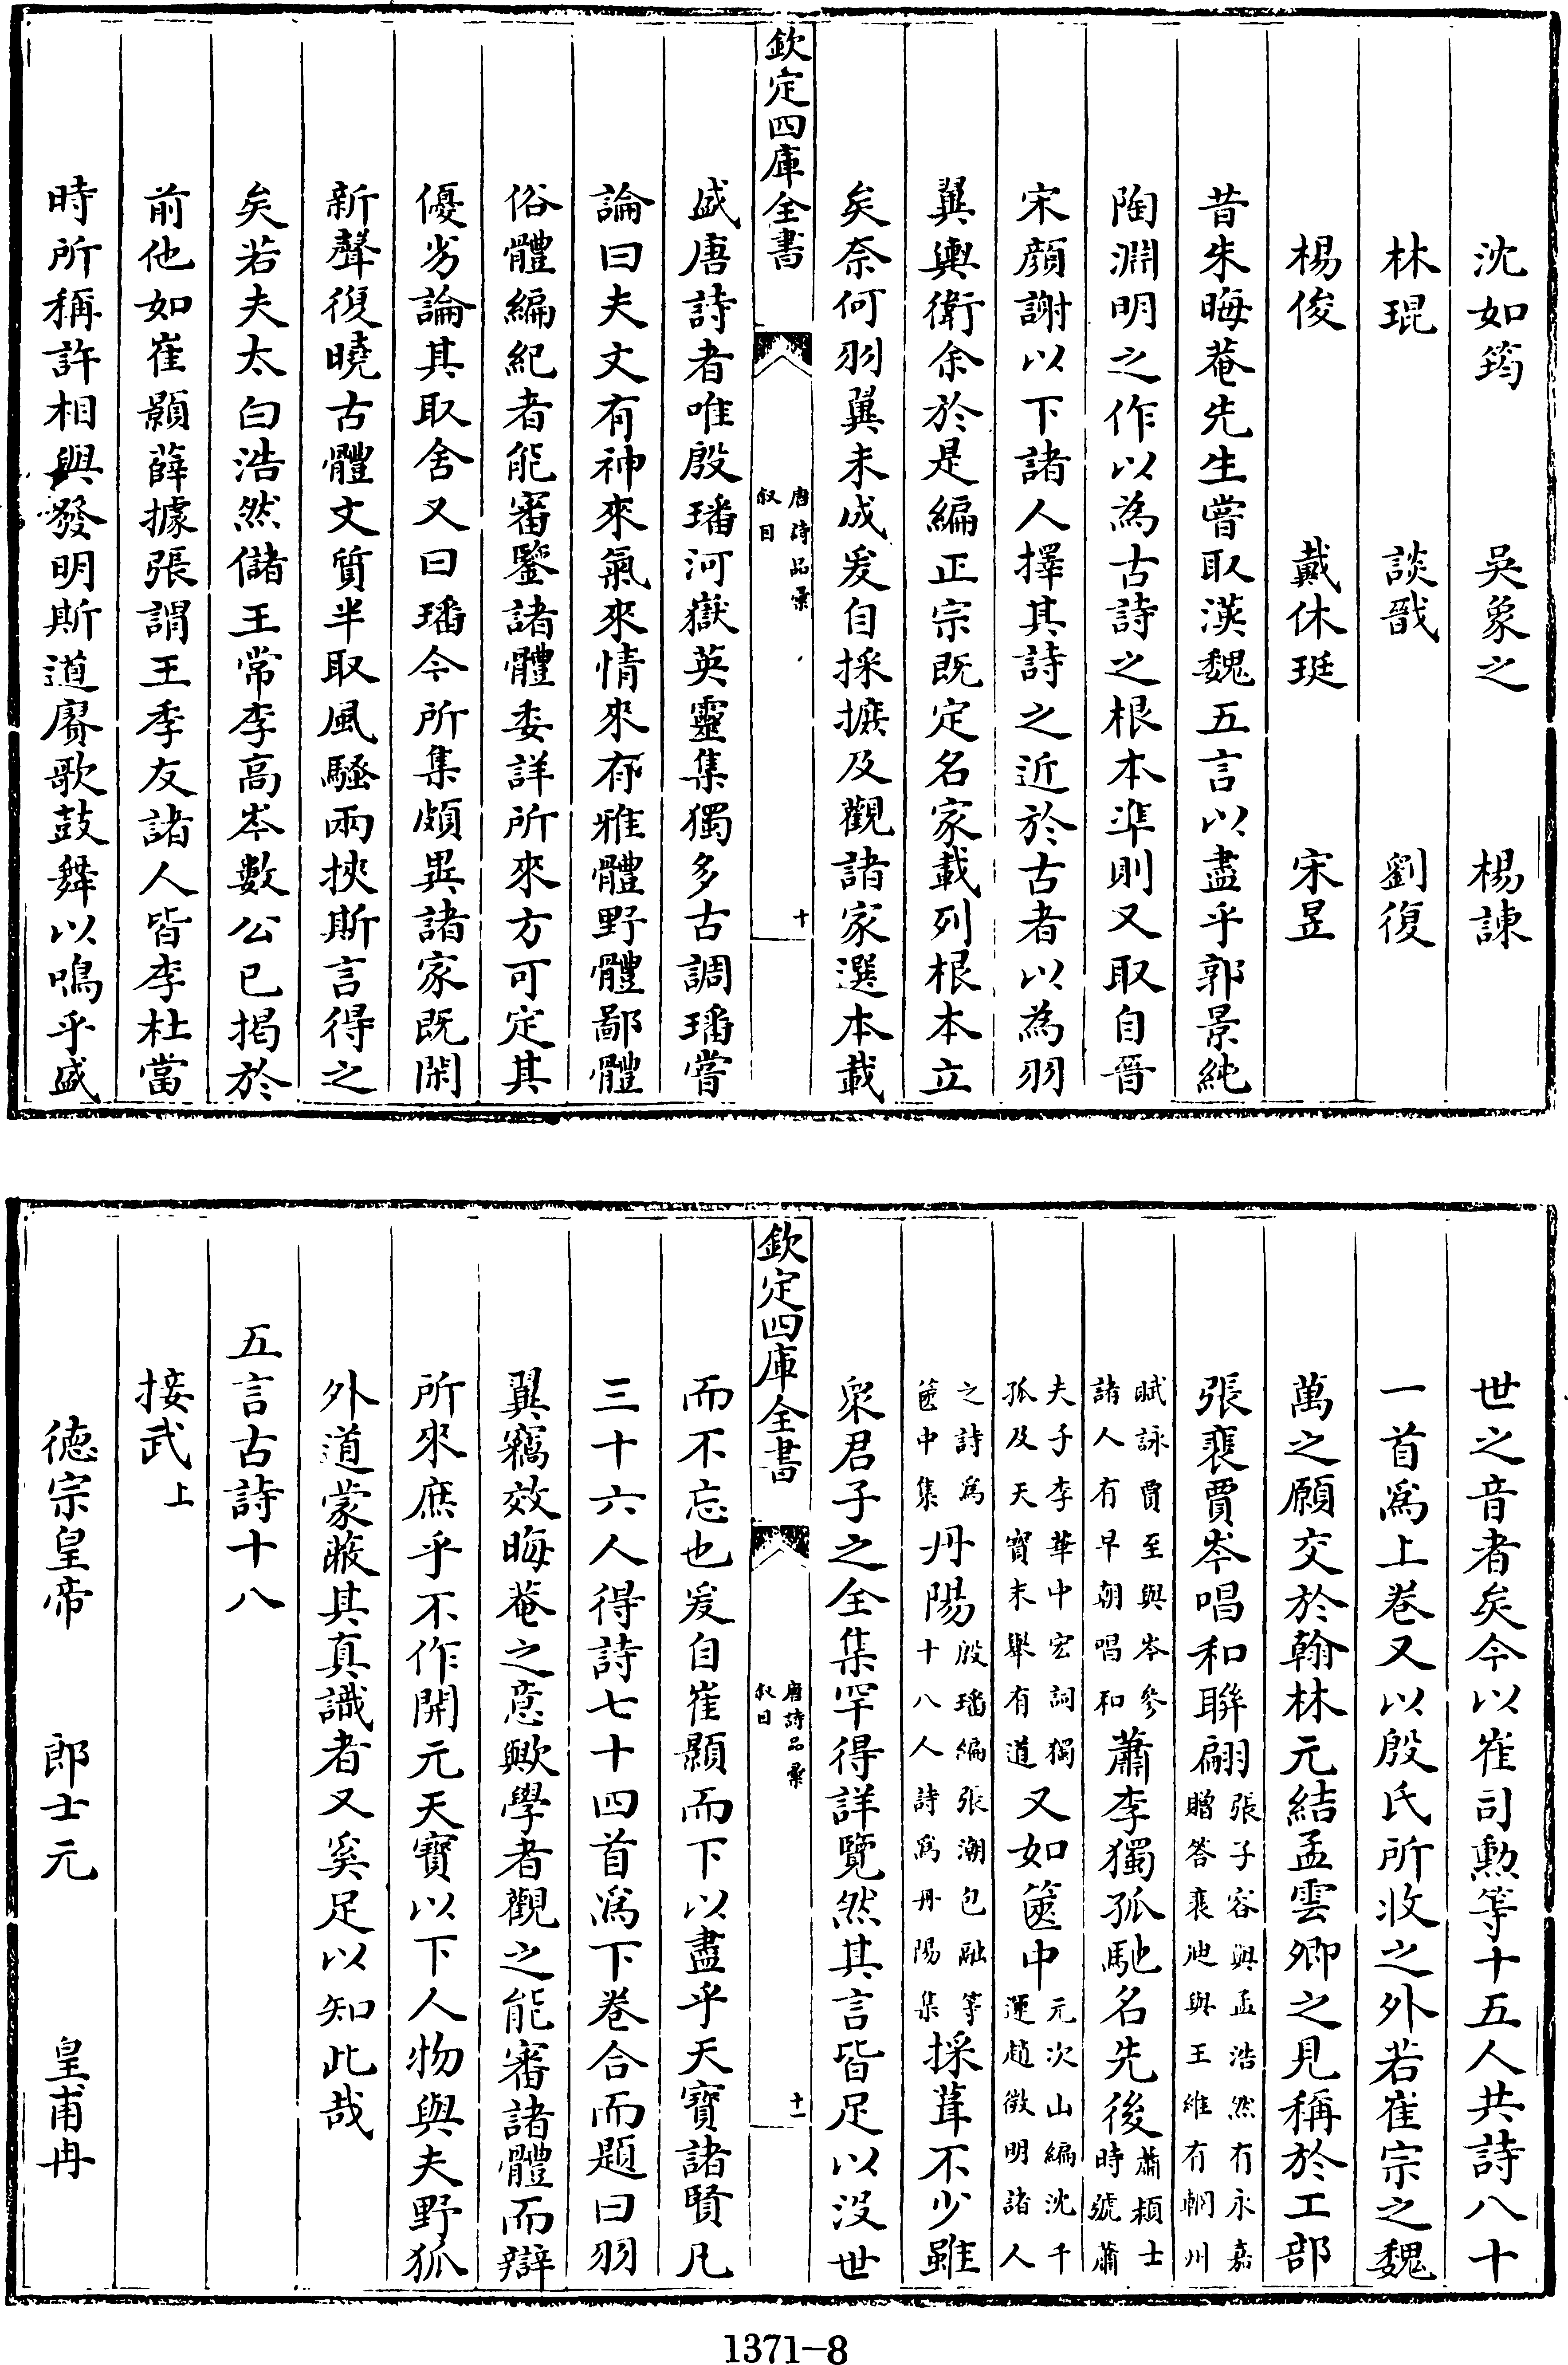 沈如筠　吳象之　楊諫
林琨　談戭　劉復
楊俊　戴休珽　宋昱
昔朱晦菴先生嘗取漢魏五言以盡乎郭景純
陶淵明之作以為古詩之根本準則又取自晉
宋顔謝以下諸人擇其詩之近於古者以為羽
翼輿衛余於是編正宗既定名家載列根本立
矣奈何羽翼未成爰自採摭及觀諸家選本載
欽定四庫全書
唐詩品彙
叙目
十
盛唐詩者唯殷璠河嶽英靈集獨多古調璠嘗
論曰夫文有神來氣來情來有雅體野體鄙體
俗體編紀者能審鑒諸體委詳所來方可定其
優劣論其取舍又曰璠今所集頗異諸家既閑
新聲復曉古體文質半取風騷兩挾斯言得之
矣若夫太白浩然儲王常李高岑數公已揭於
前他如崔顥薛據張謂王季友諸人皆李杜當
時所稱許相與發明斯道賡歌鼓舞以鳴乎盛
世之音者矣今以崔司勲等十五人共詩八十
一首爲上卷又以殷氏所收之外若崔宗之魏
萬之願交於翰林元結孟雲卿之見稱於工部
張裴賈岑唱和聨翩張子容與孟浩然有永嘉
贈答裴迪與王維有輞川
賦詠賈至與岑參
諸人有早朝唱和蕭李獨孤馳名先後蕭穎士
時號蕭
夫子李華中宏詞獨
孤及天寶末舉有道又如篋中元次山編沈千
運趙微明諸人
之詩爲
篋中集丹陽殷璠編張潮包融等
十八人詩爲丹陽集採葺不少雖
衆君子之全集罕得詳覽然其言皆足以没世
欽定四庫全書
唐詩品彙
叙目
十一
而不忘也爰自崔顥而下以盡乎天寶諸賢凡
三十六人得詩七十四首爲下卷合而題曰羽
翼竊效晦菴之意歟學者觀之能審諸體而辯
所來庶乎不作開元天寶以下人物與夫野狐
外道蒙蔽其真識者又奚足以知此哉
五言古詩十八
接武上
德宗皇帝　郎士元　皇甫冉
1371-8